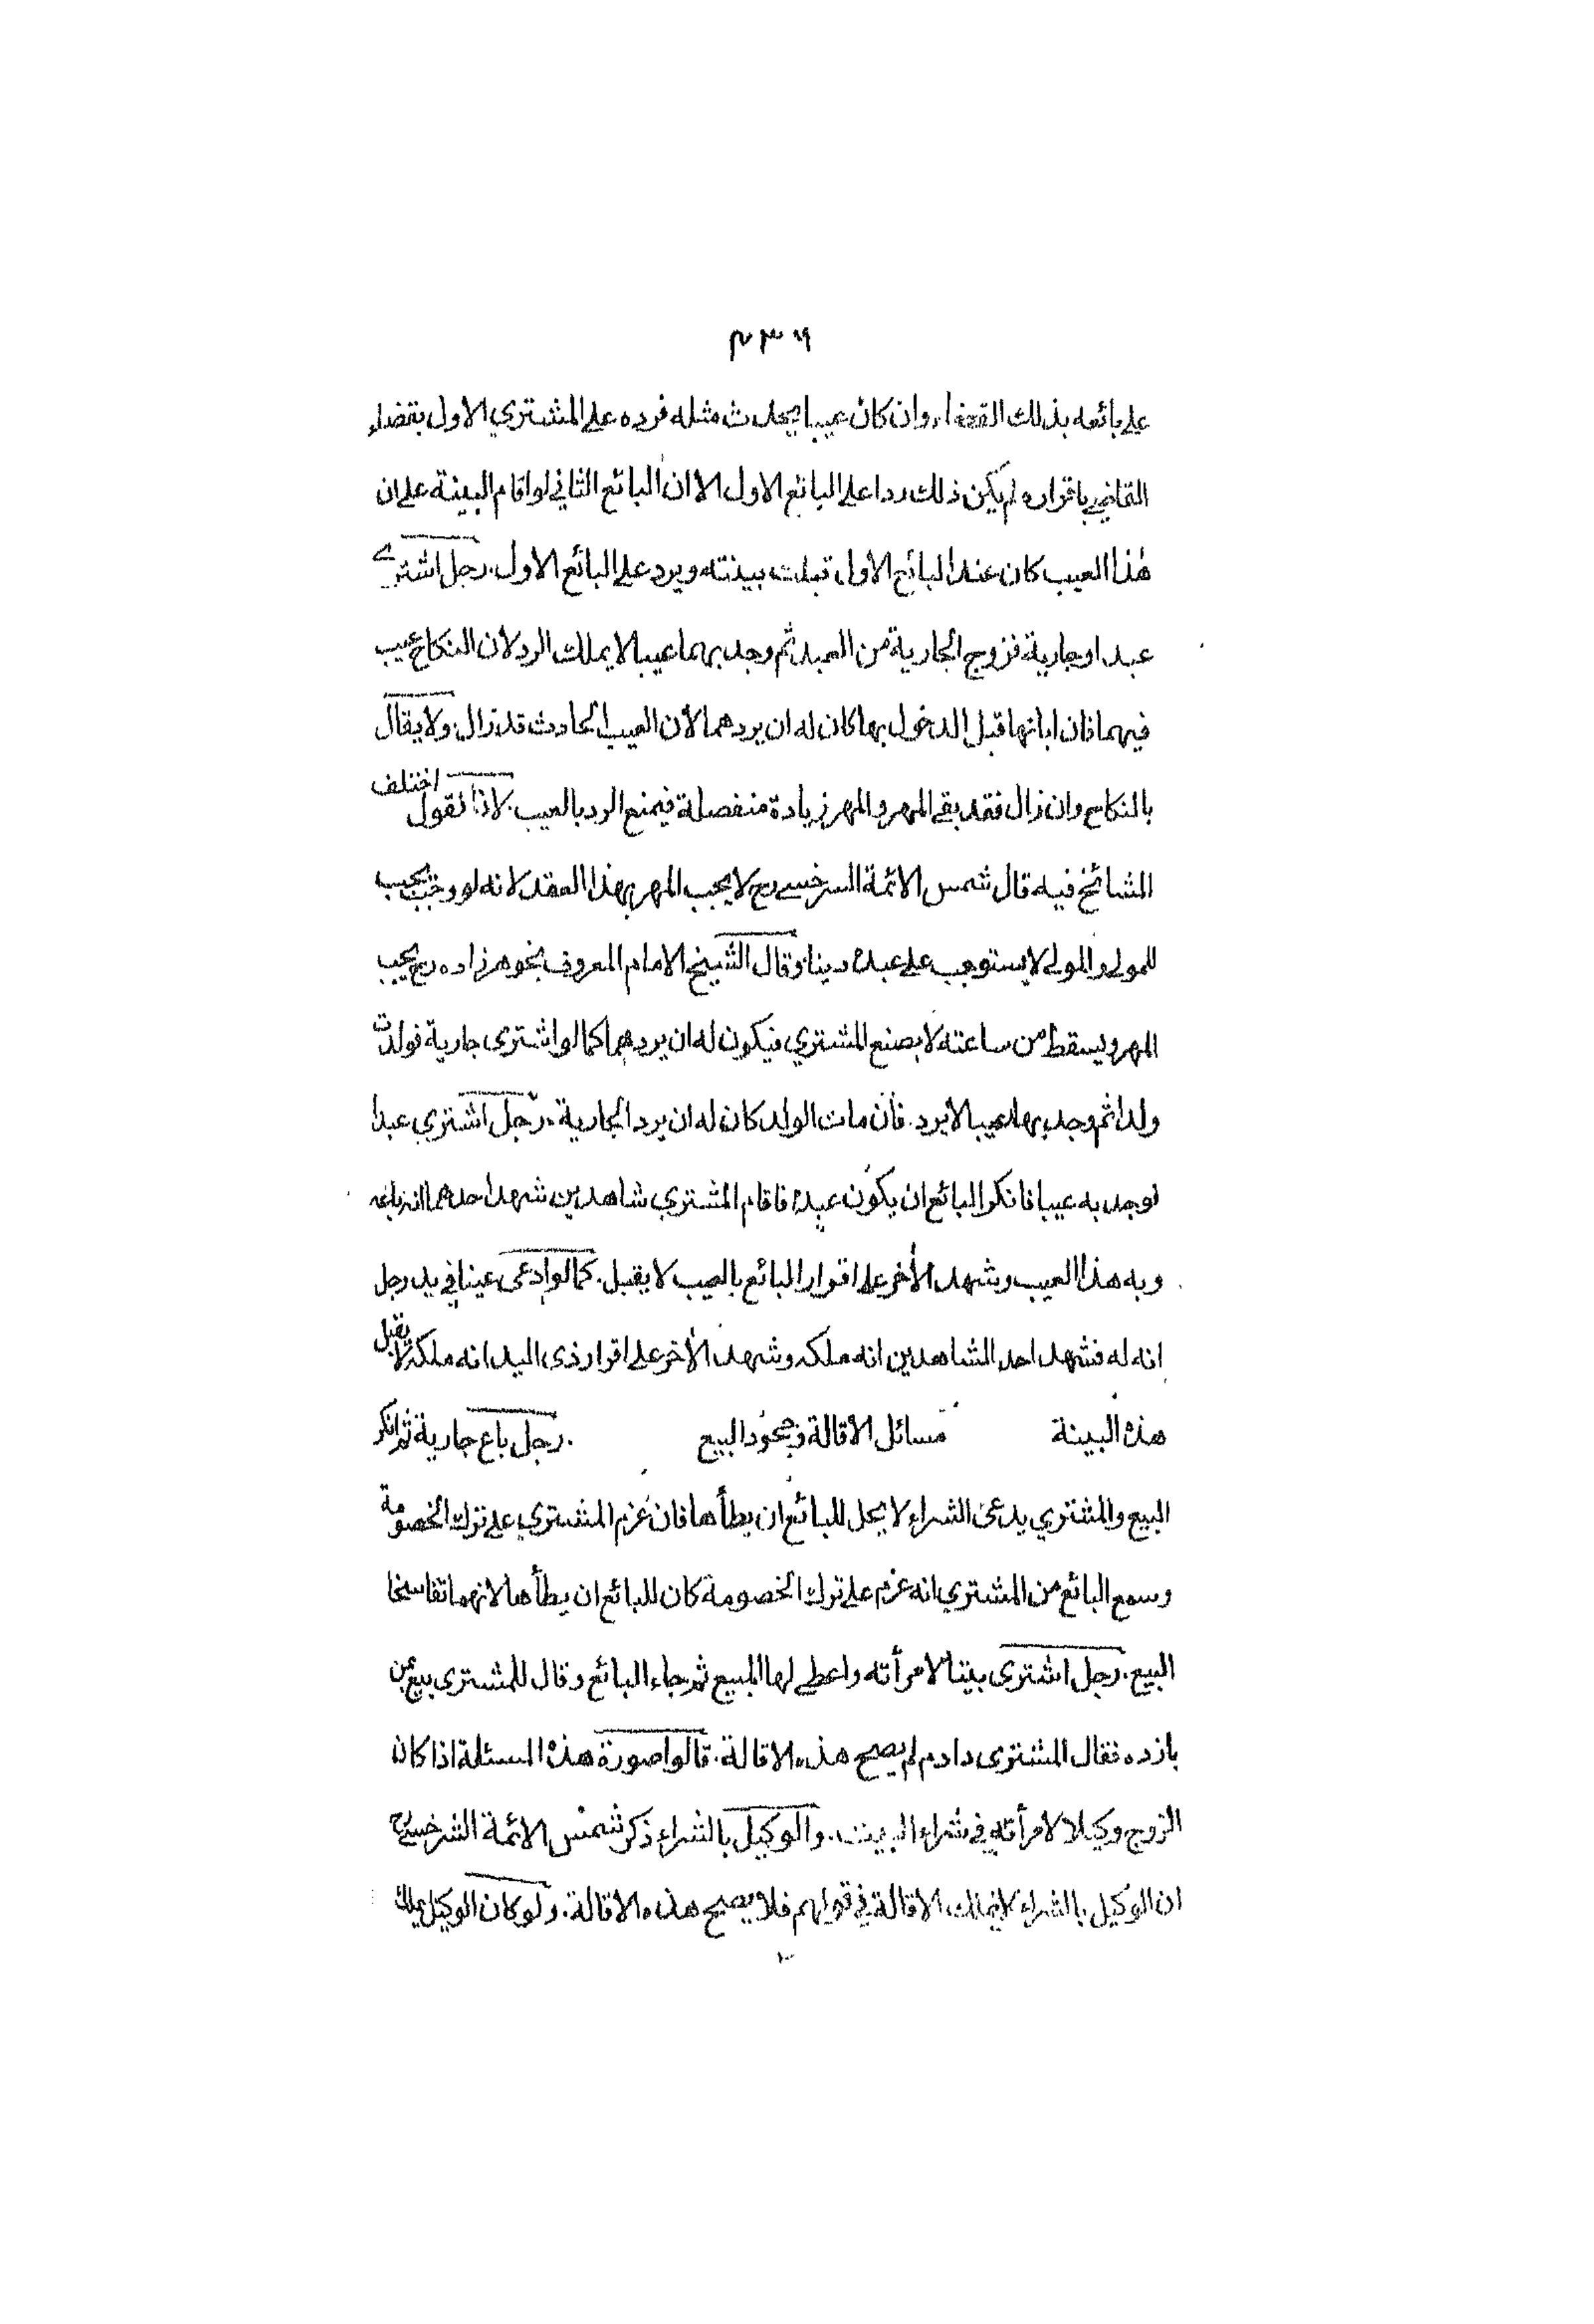 ٤٣٦
على بائعه بذلك القضاء، وان كان عيبا يحدث مثله فرده على المشتري الاول بقضاء
القاضي باقراره لم يكن ذلك ردا على البائع الاول الا ان البائع الثاني لو اقام البينة على ان
هذا العيب كان عند البائع الاول قبلت بينته ويرد على البائع الاول. رجل اشترى
عبدا وجارية فزوج الجارية من العبد ثم وجد بهما عيبا لا يملك الرد لان النكاح عيب
فيهما فان ابانها قبل الدخول بها كان له ان يردهما لان العيب الحادث قد زال، ولا يقال
بالنكاح وان زال فقد بقي المهر والمهر زيادة منفصلة فيمنع الرد بالعيب. لانا نقول اختلف
المشائخ فيه قال شمس الائمة السرخسي رح لا يجب المهر بهذا العقد لانه لو وجب يجب
للمولى والمولى لا يستوجب على عبده دينا وقال الشيخ الامام المعروف بخوهرزاده رح يجب
المهر ويسقط من ساعته لا بصنع المشتري فيكون له ان يردهما كما لو اشترى جارية فولدت
ولدا ثم وجد بها عيبا لا يرد. فان مات الولد كان له ان يرد الجارية. رجل اشتري عبدا
فوجد به عيبا فانكر البائع ان يكون عبده فاقام المشتري شاهدين شهد احدهما انه باعه
وبه هذا العيب وشهد الآخر على اقرار البائع بالعيب لا يقبل. كما لو ادعى عينا في يد رجل
انه له فشهد احد الشاهدين انه ملكه وشهد الآخر على اقرار ذى اليد انه ملكه لا يقبل
هذه البينة مسائل الاقالة وجحود البيع .رجل باع جارية ثم انكر
البيع والمشتري يدعى الشراء لا يحل للبائع ان يطأها فان عزم المشتري على ترك الخصومة
وسمع البائع من المشتري انه عزم على ترك الخصومة كان للبائع ان يطأها لانهما تفاسخا
البيع. رجل اشترى بيتا لامرأته واعطى لها المبيع ثم جاء البائع وقال للمشترى بيع من
بازده فقال المشترى دادم لم يصح هذه الاقالة. قالوا صورة هذه المسئلة اذا كان
الزوج وكيلا لامرأته في شراء البيت. والوكيل بالشراء ذكر شمس الائمة السرخسي رح
ان الوكيل بالشراء لا يملك الاقالة في قولهم فلا يصح هذه الاقالة. ولو كان الوكيل يملك